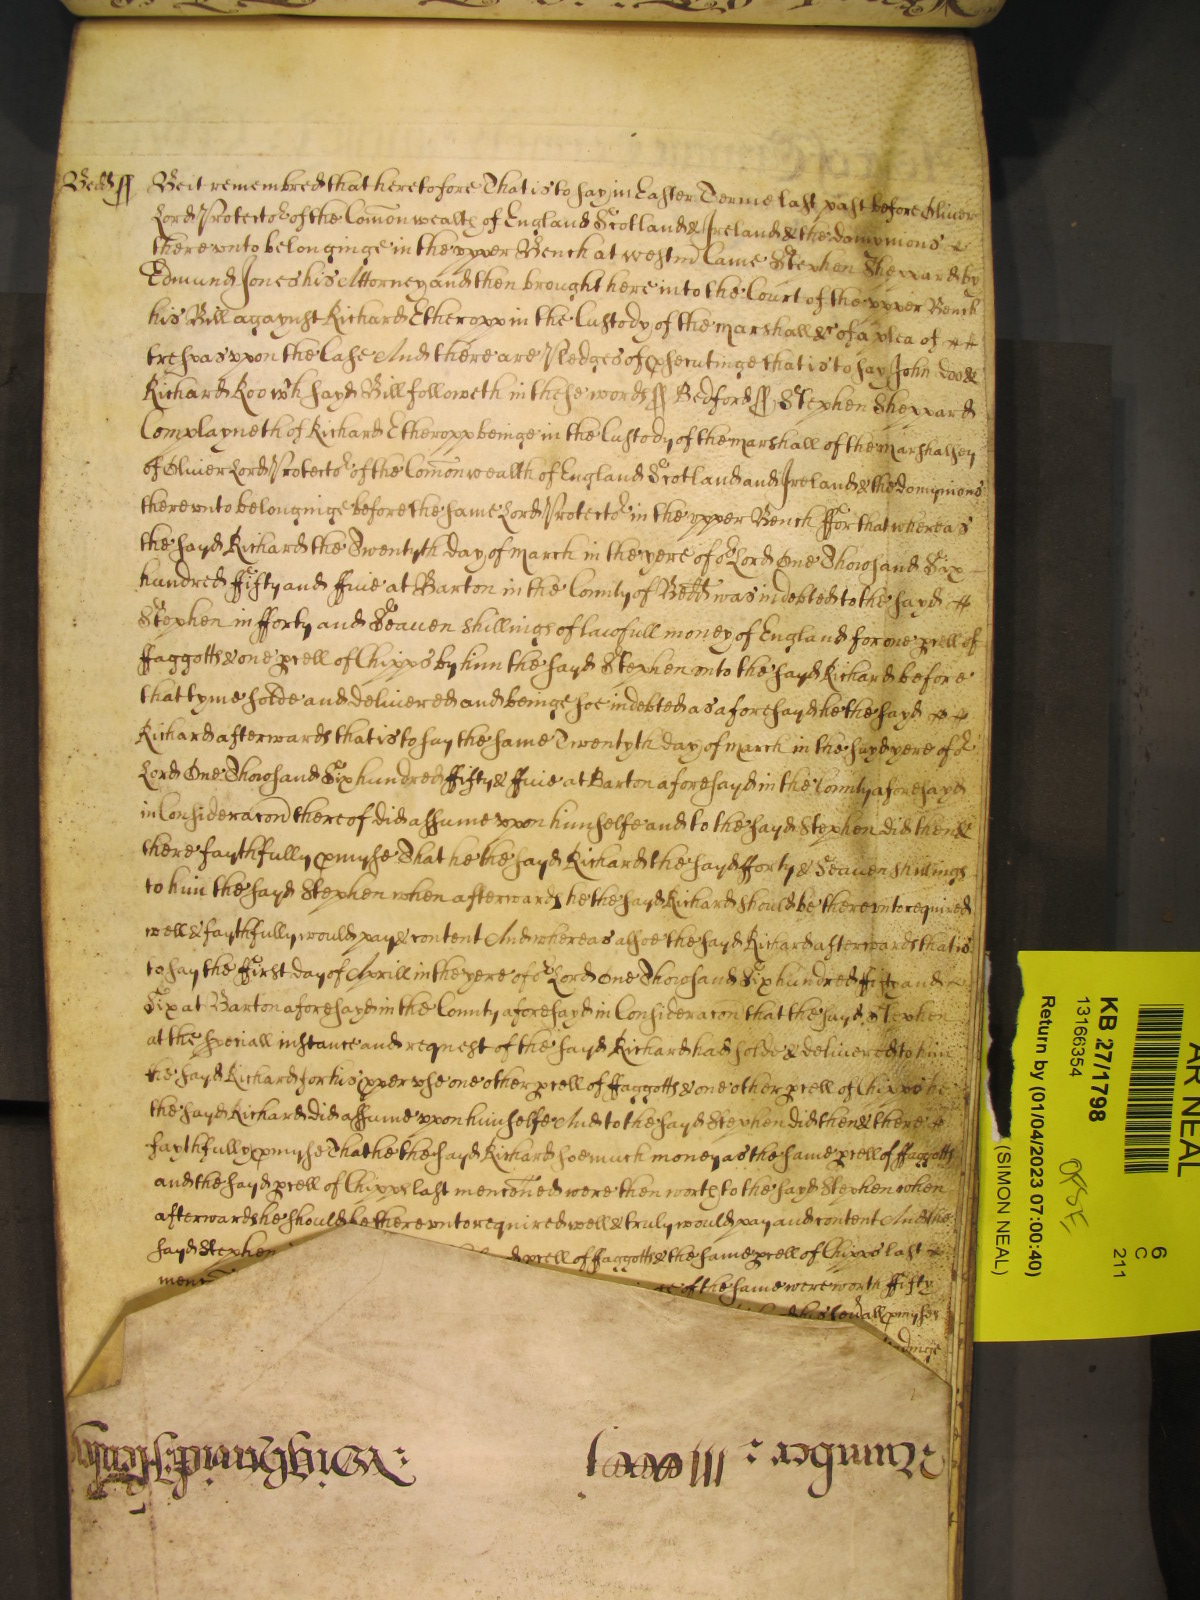 Bedd ss Be it remembred that heretofore That is to say in Easter Terme last past before Oliver
Lord Protector of the Com̄onwealth of England Scotland & Ireland & the dominions
therevnto belonginge in the vpper Bench at Westm̄ Came Stephen Sheppard by
Edmund Jones his Attorney and then brought here into the Court of the vpper Bench
his Bill agaynst Richard Etheropp in the Custody of the marshall &c of a plea of
trespas vpon the Case And there are Pledges of psecutinge that is to say John Doo &
Richard Roo wch sayd Bill followeth in these words ss Bedford ss Stephen Sheppard
Complayneth of Richard Etheropp beinge in the Custody of the marshall of the marshalsey
of Oliver Lord Protector of the Com̄onwealth of England Scotland and Ireland & the dominions
therevnto belonginge before the same Lord Protector in the vpper Bench ffor that whereas
the sayd Richard the Twentyth day of march in the yere of or Lord One Thowsand Six
hundred ffifty and ffiue at Barton in the County of Bedd was indebted to the sayd
Stephen in fforty and Seauen shillings of lawfull money of England for one pcell of
ffaggotts & one pcell of Chipps by him the sayd Stephen vnto the sayd Richard before
that tyme solde and deliuered and beinge soe indebted as aforesayd he the sayd
Richard afterwards that is to say the same Twentyth day of march in the sayd yere of or
Lord One Thowsand Six hundred ffifty & ffiue at Barton aforesayd in the County aforesayd
in Consideracon thereof did assume vpon himselfe and to the sayd Stephen did then &
there faythfully pmyse That he the sayd Richard the sayd fforty & Seauen shillings
to him the sayd Stephen when afterwards he the sayd Richard should be therevnto required
well & faythfully would pay & content And whereas alsoe the sayd Richard afterwards that is
to say the ffirst day of Aprill in the yere of or Lord One Thowsand Six hundred ffifty and
Six at Barton aforesayd in the County aforesayd in Consideracon that the sayd Stephen
at the speciall instance and request of the sayd Richard had solde & deliuered to him
the sayd Richard for his pper vse one other pcell of ffaggotts & one other pcell of Chipps he
the sayd Richard did assume vpon himselfe And to the sayd Stephen did then & there
faythfully pmyse That he the sayd Richard soe much money as the same pcell of ffaggotts
and the sayd pcell of Chipps last menconed were then worth to the sayd Stephen when
afterwards he should be therevnto required well & truly would pay and content And the
sayd Stephen d pcell of ffaggotts & the same pcell of Chipps last
men of the same were worth ffifty
his seuall pmyses
Number: IIII
: Wightwick
AR NEAL
KB 27/1798
13166354
Return by (01/04/2023 07:00:40)
(SIMON NEAL)
6
C
211